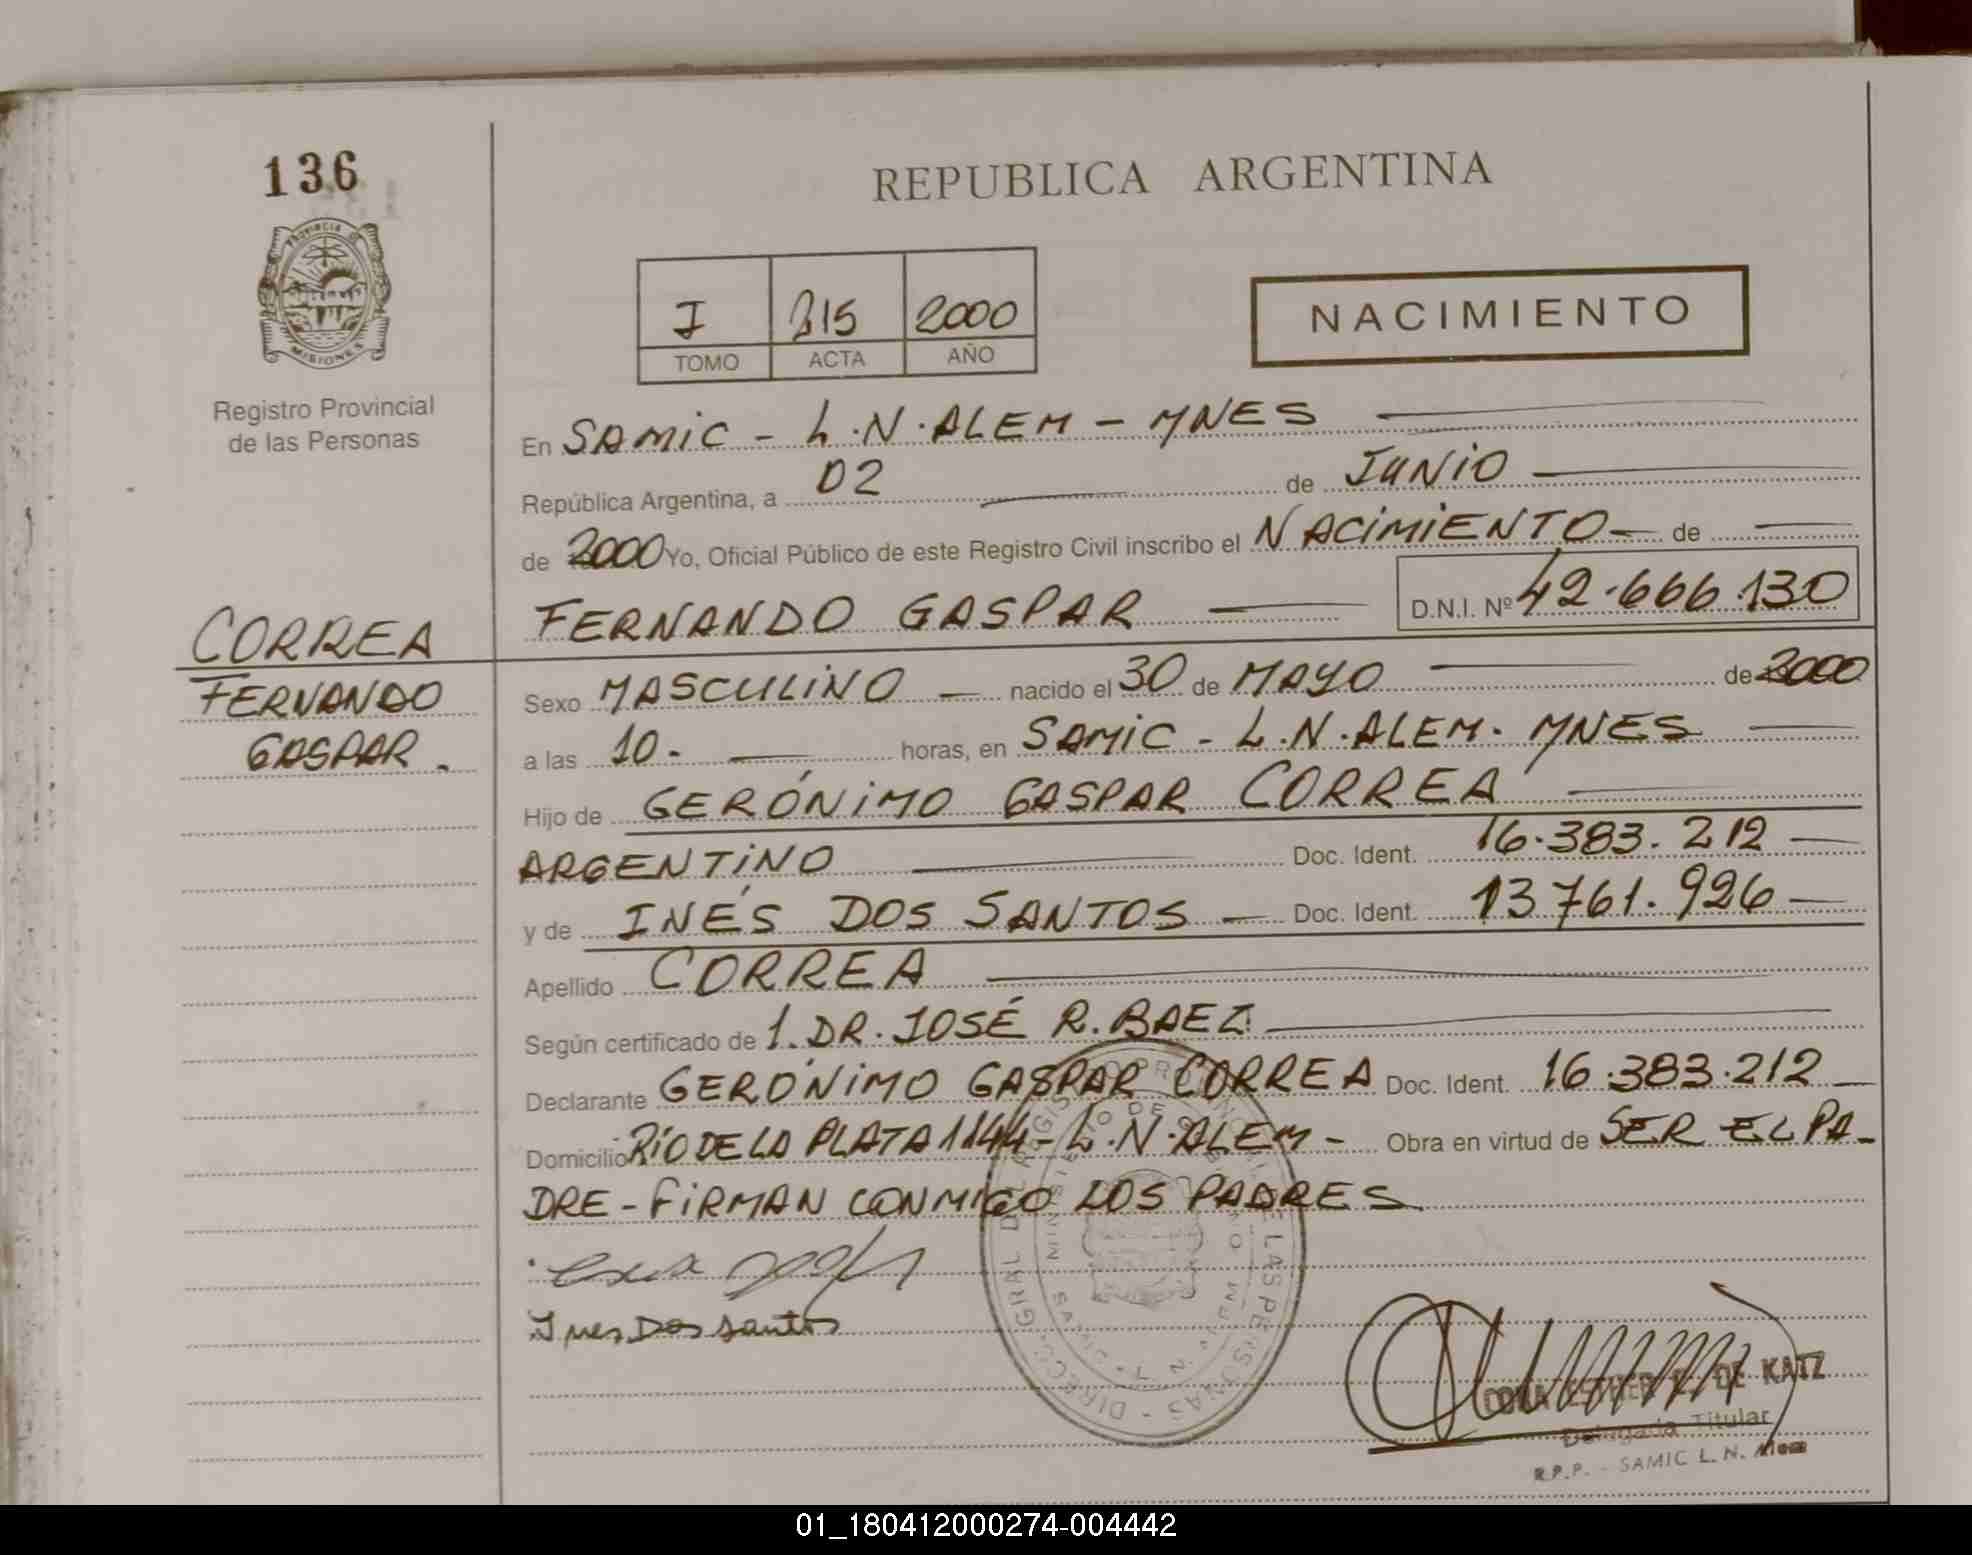 136
REPUBLICA ARGENTINA
Provincia de
MISIONES
Registro Provincial
de las Personas
I 215 2000
TOMO ACTA AÑO
NACIMIENTO
En SAMIC - L.N. ALEM - MNES
República Argentina, a 02 de JUNIO
de 2000 Yo, Oficial Público de este Registro Civil inscribo el NACIMIENTO de
FERNANDO GASPAR D.N.I. Nº 42.666.130
CORREA
FERNANDO
GASPAR.
Sexo MASCULINO nacido el 30 de MAYO de 2000
a las 10- horas, en SAMIC - L.N. ALEM. MNES
Hijo de GERÓNIMO GASPAR CORREA
ARGENTINO Doc. Ident. 16.383.212
y de INÉS DOS SANTOS Doc. Ident. 13761.926
Apellido CORREA
Según certificado de 1. DR. JOSÉ R. BAEZ
Declarante GERÓNIMO GASPAR CORREA Doc. Ident. 16.383.212
Domicilio RÍO DE LA PLATA 1144 - L.N. ALEM - Obra en virtud de SER EL PA-
DRE - FIRMAN CONMIGO LOS PADRES
Ines Dos santos
DE KATZ
Delegada Titular
R.P.P. - SAMIC L. N. Alem
01_180412000274-004442